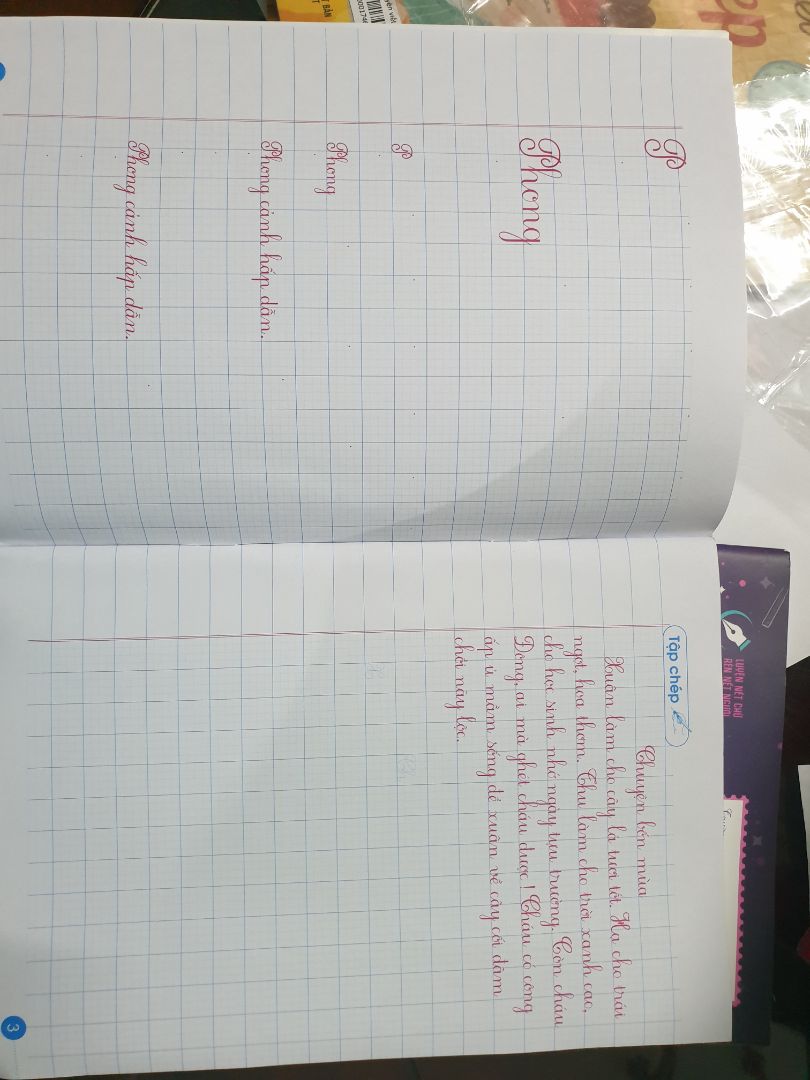 P
Phong
P
Phong
Phong cảnh hấp dẫn.
Phong cảnh hấp dẫn.
Tập chép
Chuyện bốn mùa
Xuân làm cho cây lá tươi tốt. Hạ cho trái
ngọt, hoa thơm. Thu làm cho trời xanh cao,
cho học sinh nhớ ngày tựu trường. Còn cháu
Đông, ai mà ghét cháu được! Cháu có công
ấp ủ mầm sống để xuân về cây cối đâm
chồi nảy lộc.
3
LUYỆN NÉT CHỮ
RÈN NẾT NGƯỜI